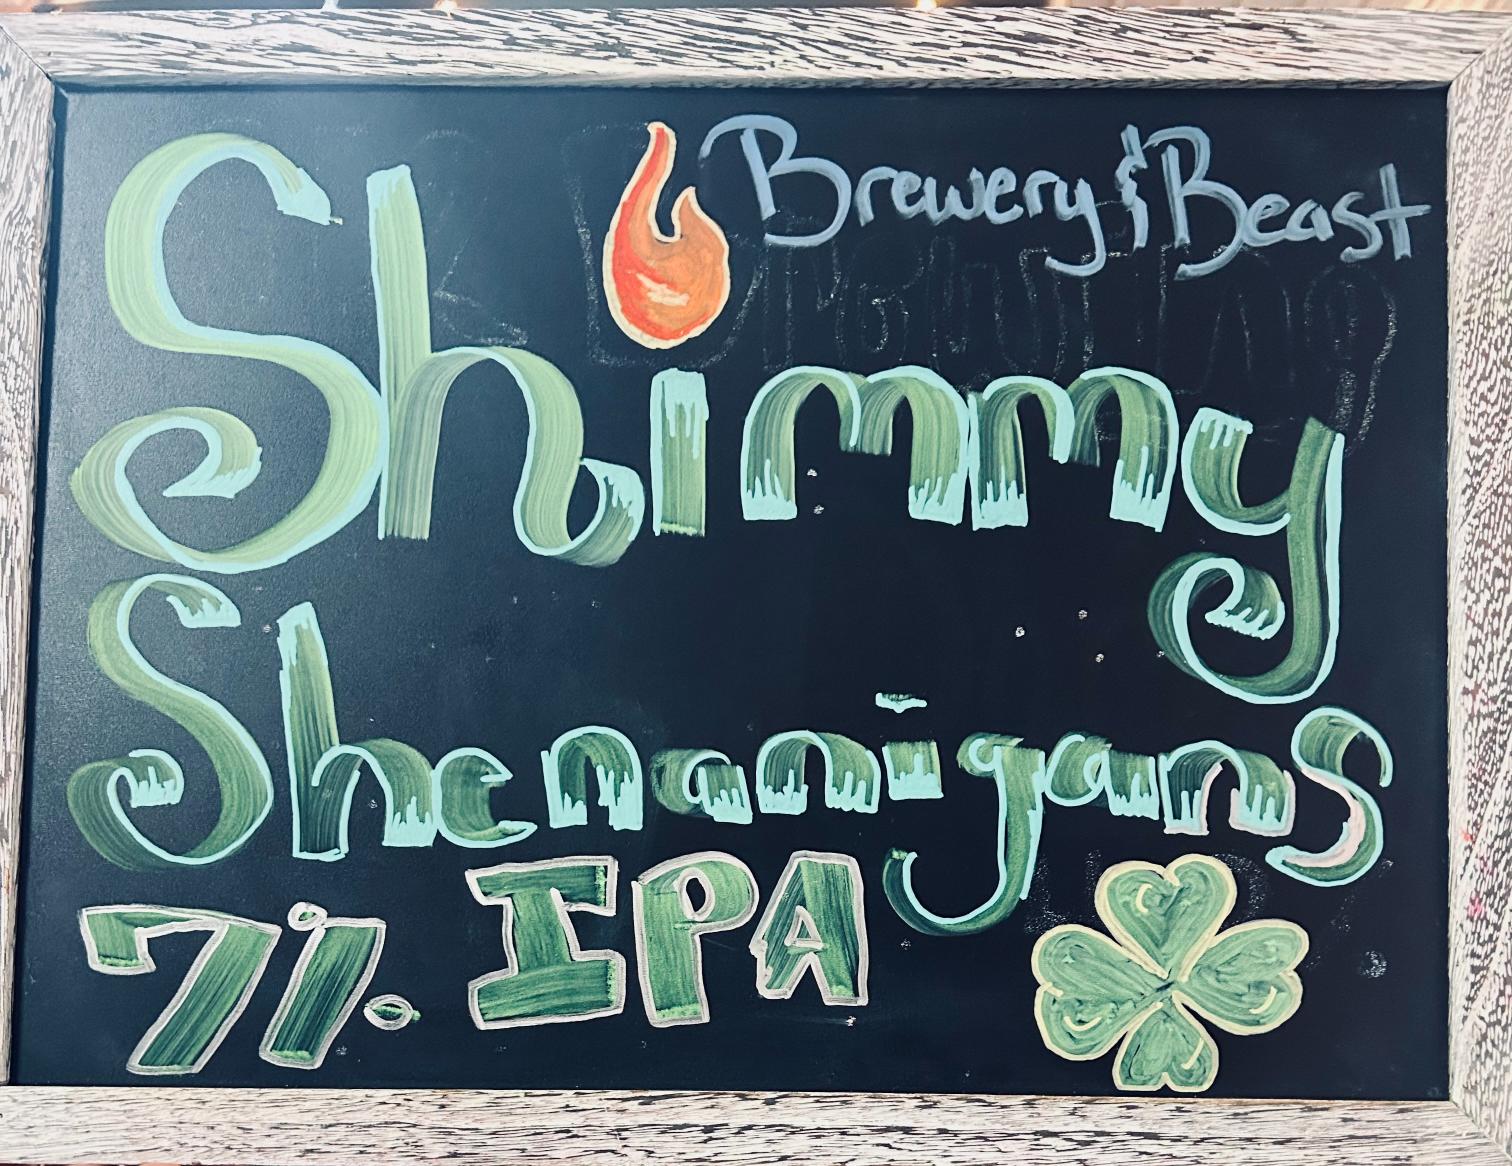 Brewery & Beast
Shimmy
Shenanigans
7% IPA